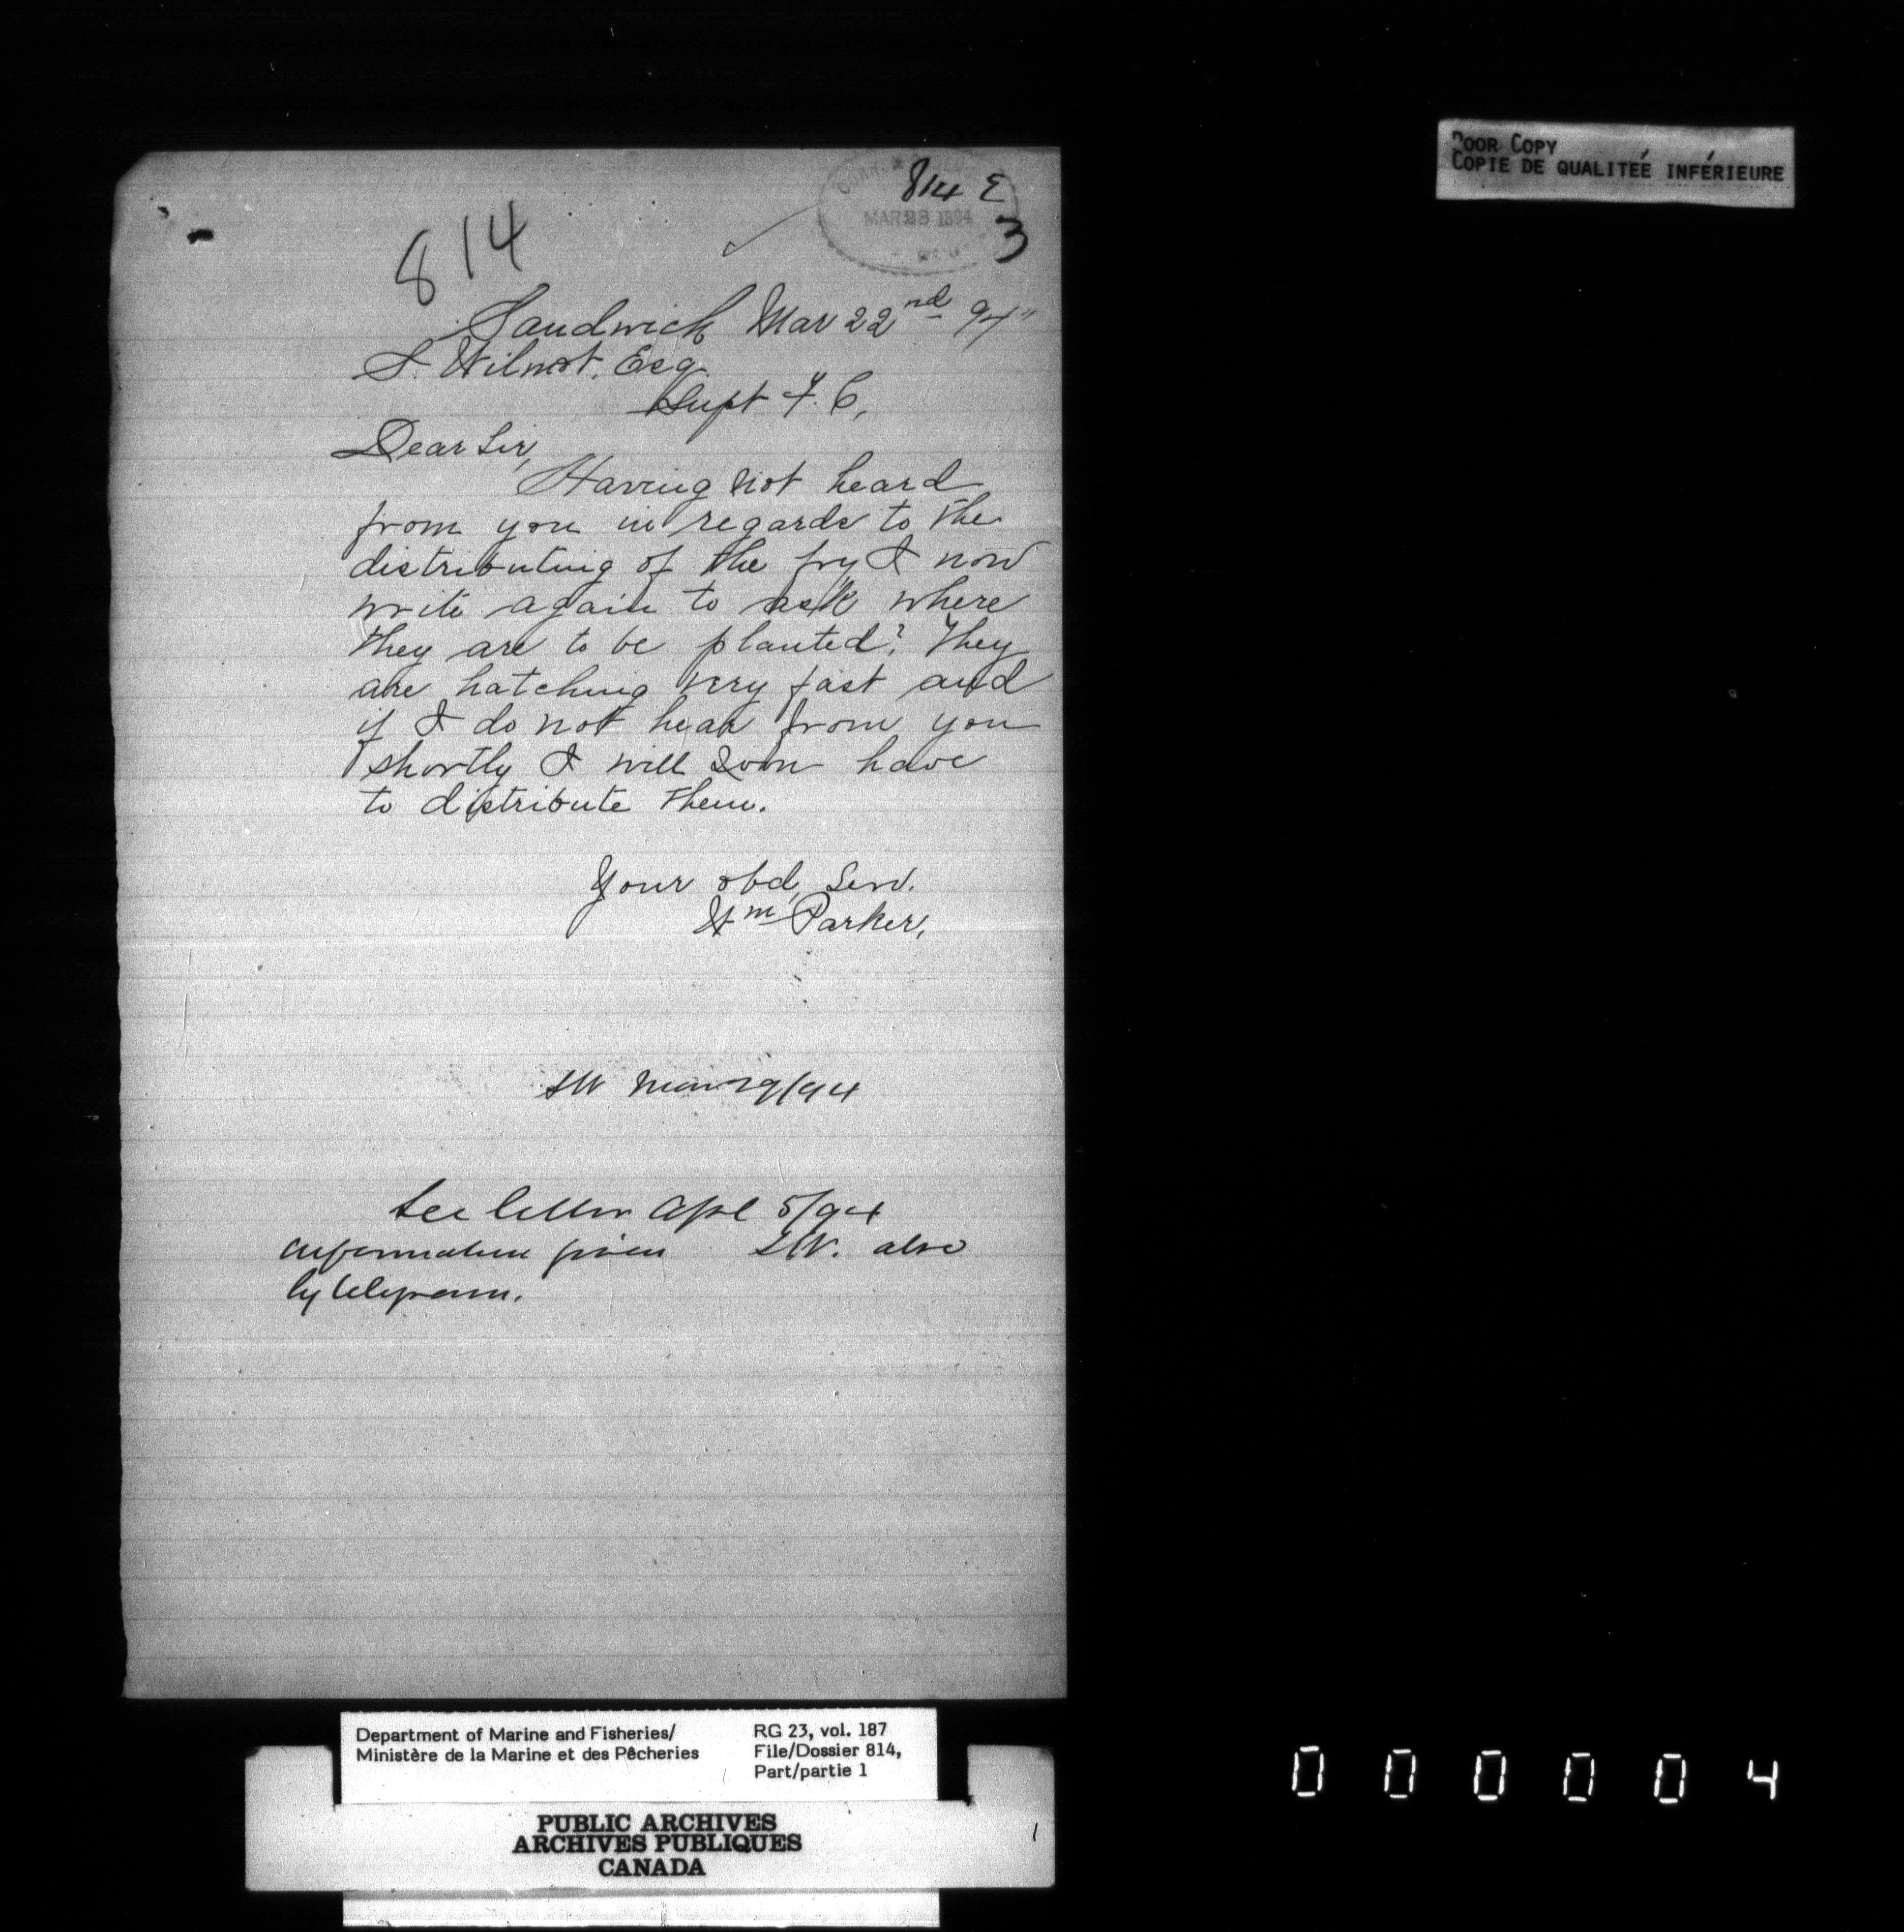 POOR COPY
COPIE DE QUALITEÉ INFÉRIEURE
814 E
MAR 28 1894
3
814
Sandwich Mar 22nd 94"
S. Wilmot. Esq.
Supt F. C.
Dear Sir,
Having not heard
from you in regards to the
distributing of the fry I now
write again to ask where
they are to be planted? They
are hatching very fast and
if I do not hear from you
shortly I will soon have
to distribute them.
Your obd, Serv.
Wm Parker.
SW Mar 29/94
See letter Apl 5/94
information given SW. also
by telegram.
Department of Marine and Fisheries/
Ministère de la Marine et des Pêcheries
RG 23, vol. 187
File/Dossier 814,
Part/partie 1
PUBLIC ARCHIVES
ARCHIVES PUBLIQUES
CANADA
1
000004